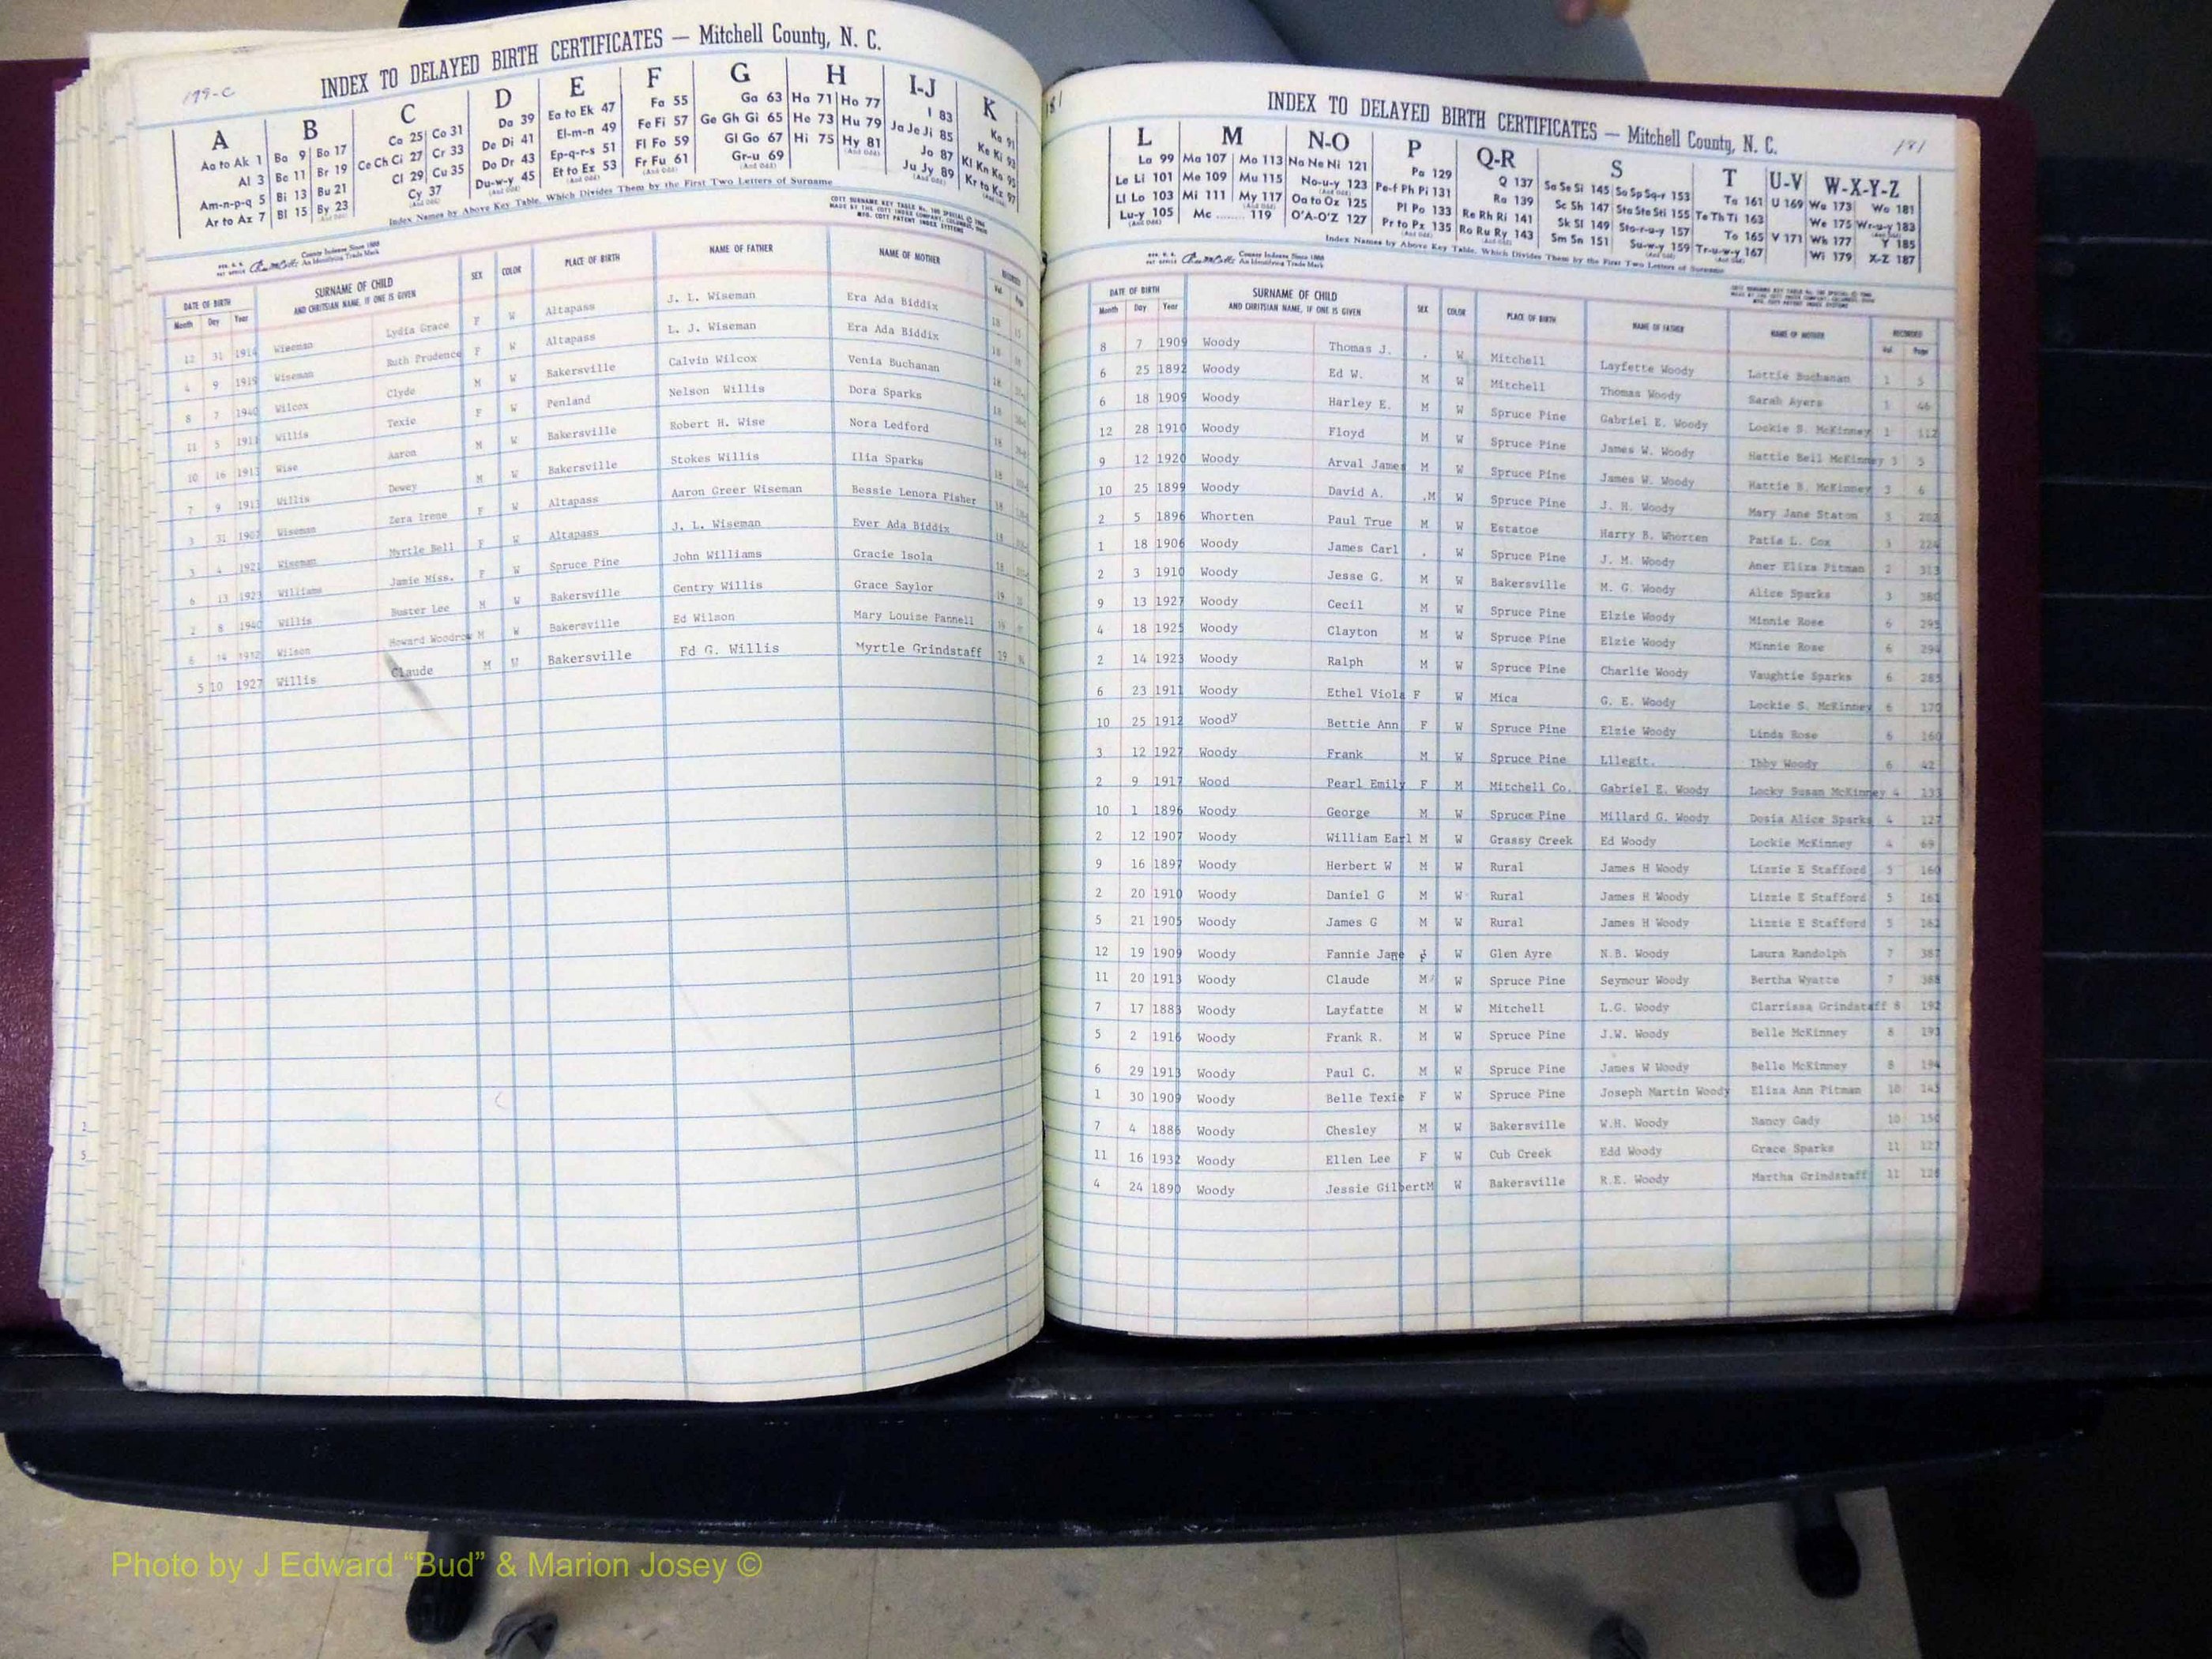 179-C
INDEX TO DELAYED BIRTH CERTIFICATES — Mitchell County, N. C.
A B C D E F G H I-J K
Aa to Ak 1 Ba 9 Bo 17 Ca 25 Co 31 Da 39 Ea to Ek 47 Fa 55 Ga 63 Ha 71 Ho 77 I 83 Ka 91
Al 3 Be 11 Br 19 Ce Ch Ci 27 Cr 33 De Di 41 El-m-n 49 Fe Fi 57 Ge Gh Gi 65 He 73 Hu 79 Ja Je Ji 85 Ke Ki 93
Am-n-p-q 5 Bi 13 Bu 21 Cl 29 Cu 35 Do Dr 43 Ep-q-r-s 51 Fl Fo 59 Gl Go 67 Hi 75 Hy 81 Jo 87 Kl Kn Ko 95
Ar to Az 7 Bl 15 By 23 Cy 37 Du-w-y 45 Et to Ez 53 Fr Fu 61 Gr-u 69 Ju Jy 89 Kr to Kz 97
Index Names by Above Key Table, Which Divides Them by the First Two Letters of Surname
County Indexes Since 1888
An Identifying Trade Mark
DATE OF BIRTH SURNAME OF CHILD SEX COLOR PLACE OF BIRTH NAME OF FATHER NAME OF MOTHER RECORDED
Month Day Year AND CHRITSIAN NAME, IF ONE IS GIVEN Vol. Page
12 31 1914 Wiseman Lydia Grace F W Altapass J. L. Wiseman Era Ada Biddix 18
4 9 1919 Wiseman Ruth Prudence F W Altapass L. J. Wiseman Era Ada Biddix 18
8 7 1940 Wilcox Clyde M W Bakersville Calvin Wilcox Venia Buchanan 18
11 5 1911 Willis Texie F W Penland Nelson Willis Dora Sparks 18
10 16 1913 Wise Aaron M W Bakersville Robert H. Wise Nora Ledford 18
7 9 1913 Willis Dewey M W Bakersville Stokes Willis Ilia Sparks 18
3 31 1907 Wiseman Zera Irene F W Altapass Aaron Greer Wiseman Bessie Lenora Pisher 18
3 4 1921 Wiseman Myrtle Bell F W Altapass J. L. Wiseman Ever Ada Biddix 18
6 13 1923 Williams Jamie Miss. F W Spruce Pine John Williams Gracie Isola 18
2 8 1940 Willis Buster Lee M W Bakersville Gentry Willis Grace Saylor 19
8 14 1912 Wilson Howard Woodrow M W Bakersville Ed Wilson Mary Louise Pannell 19
5 10 1927 Willis Claude M W Bakersville Ed G. Willis Myrtle Grindstaff 19
181
INDEX TO DELAYED BIRTH CERTIFICATES — Mitchell County, N. C.
181
L M N-O P Q-R S T U-V W-X-Y-Z
La 99 Ma 107 Mo 113 Na Ne Ni 121 Pa 129 Q 137 Sa Se Si 145 So Sp Sq-r 153 Ta 161 U 169 Wa 173 Wo 181
Le Li 101 Me 109 Mu 115 No-u-y 123 Pe-f Ph Pi 131 Ra 139 Sc Sh 147 Sta Ste Sti 155 Te Th Ti 163 We 175 Wr-u-y 183
Ll Lo 103 Mi 111 My 117 Oa to Oz 125 Pl Po 133 Re Rh Ri 141 Sk Sl 149 Sto-r-u-y 157 To 165 V 171 Wh 177 Y 185
Lu-y 105 Mc ........ 119 O'A-O'Z 127 Pr to Pz 135 Ro Ru Ry 143 Sm Sn 151 Su-w-y 159 Tr-u-w-y 167 Wi 179 X-Z 187
Index Names by Above Key Table, Which Divides Them by the First Two Letters of Surname
County Indexes Since 1888
An Identifying Trade Mark
DATE OF BIRTH SURNAME OF CHILD SEX COLOR PLACE OF BIRTH NAME OF FATHER NAME OF MOTHER RECORDED
Month Day Year AND CHRITSIAN NAME, IF ONE IS GIVEN Vol. Page
8 7 1909 Woody Thomas J. . W Mitchell Layfette Woody Lottie Buchanan 1 5
6 25 1892 Woody Ed W. M W Mitchell Thomas Woody Sarah Ayers 1 46
6 18 1909 Woody Harley E. M W Spruce Pine Gabriel E. Woody Lockie S. McKinney 1 112
12 28 1910 Woody Floyd M W Spruce Pine James W. Woody Hattie Bell McKinney 3 5
9 12 1920 Woody Arval James M W Spruce Pine James W. Woody Hattie B. McKinney 3 6
10 25 1899 Woody David A. .M W Spruce Pine J. H. Woody Mary Jane Staton 3 202
2 5 1896 Whorten Paul True M W Estatoe Harry B. Whorten Patia L. Cox 3 224
1 18 1906 Woody James Carl . W Spruce Pine J. M. Woody Aner Eliza Pitman 2 313
2 3 1910 Woody Jesse G. M W Bakersville M. G. Woody Alice Sparks 3 380
9 13 1927 Woody Cecil M W Spruce Pine Elzie Woody Minnie Rose 6 295
4 18 1925 Woody Clayton M W Spruce Pine Elzie Woody Minnie Rose 6 294
2 14 1923 Woody Ralph M W Spruce Pine Charlie Woody Vaughtie Sparks 6 285
6 23 1911 Woody Ethel Viola F W Mica G. E. Woody Lockie S. McKinney 6 170
10 25 1912 Woody Bettie Ann F W Spruce Pine Elzie Woody Linda Rose 6 160
3 12 1927 Woody Frank M W Spruce Pine Lllegit. Ibby Woody 6 42
2 9 1917 Wood Pearl Emily F M Mitchell Co. Gabriel E. Woody Locky Susan McKinney 4 133
10 1 1896 Woody George M W Spruce Pine Millard G. Woody Dosia Alice Sparks 4 127
2 12 1907 Woody William Earl M W Grassy Creek Ed Woody Lockie McKinney 4 69
9 16 1897 Woody Herbert W M W Rural James H Woody Lizzie E Stafford 5 160
2 20 1910 Woody Daniel G M W Rural James H Woody Lizzie E Stafford 5 161
5 21 1905 Woody James G M W Rural James H Woody Lizzie E Stafford 5 162
12 19 1909 Woody Fannie Jane F W Glen Ayre N.B. Woody Laura Randolph 7 387
11 20 1913 Woody Claude M W Spruce Pine Seymour Woody Bertha Wyatte 7 388
7 17 1883 Woody Layfatte M W Mitchell L.G. Woody Clarrissa Grindstaff 8 192
5 2 1916 Woody Frank R. M W Spruce Pine J.W. Woody Belle McKinney 8 193
6 29 1913 Woody Paul C. M W Spruce Pine James W Woody Belle McKinney 8 194
1 30 1909 Woody Belle Texie F W Spruce Pine Joseph Martin Woody Eliza Ann Pitman 10 145
7 4 1886 Woody Chesley M W Bakersville W.H. Woody Nancy Gady 10 150
11 16 1932 Woody Ellen Lee F W Cub Creek Edd Woody Grace Sparks 11 127
4 24 1890 Woody Jessie Gilbert M W Bakersville R.E. Woody Martha Grindstaff 11 128
Photo by J Edward “Bud” & Marion Josey ©